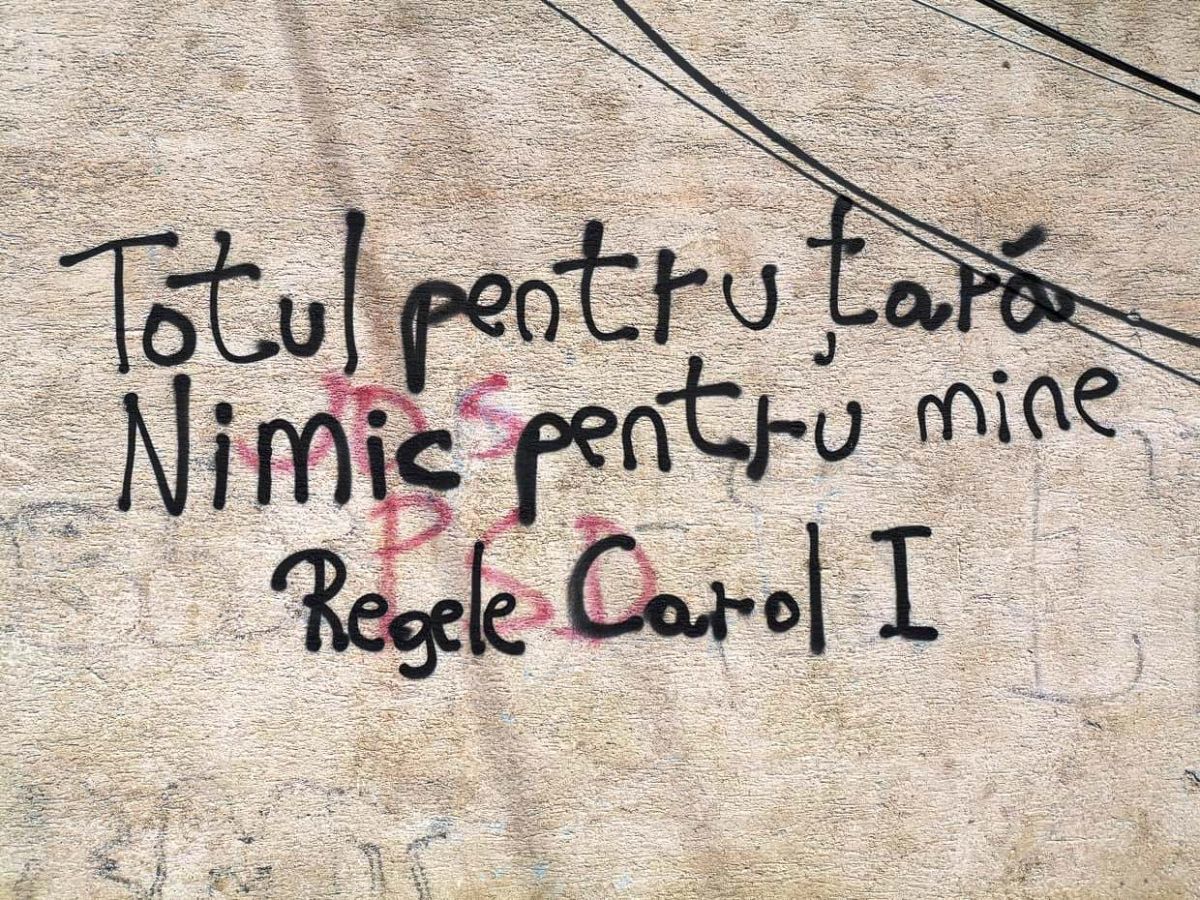 Totul pentru țară
Nimic pentru mine
Regele Carol I
PSD